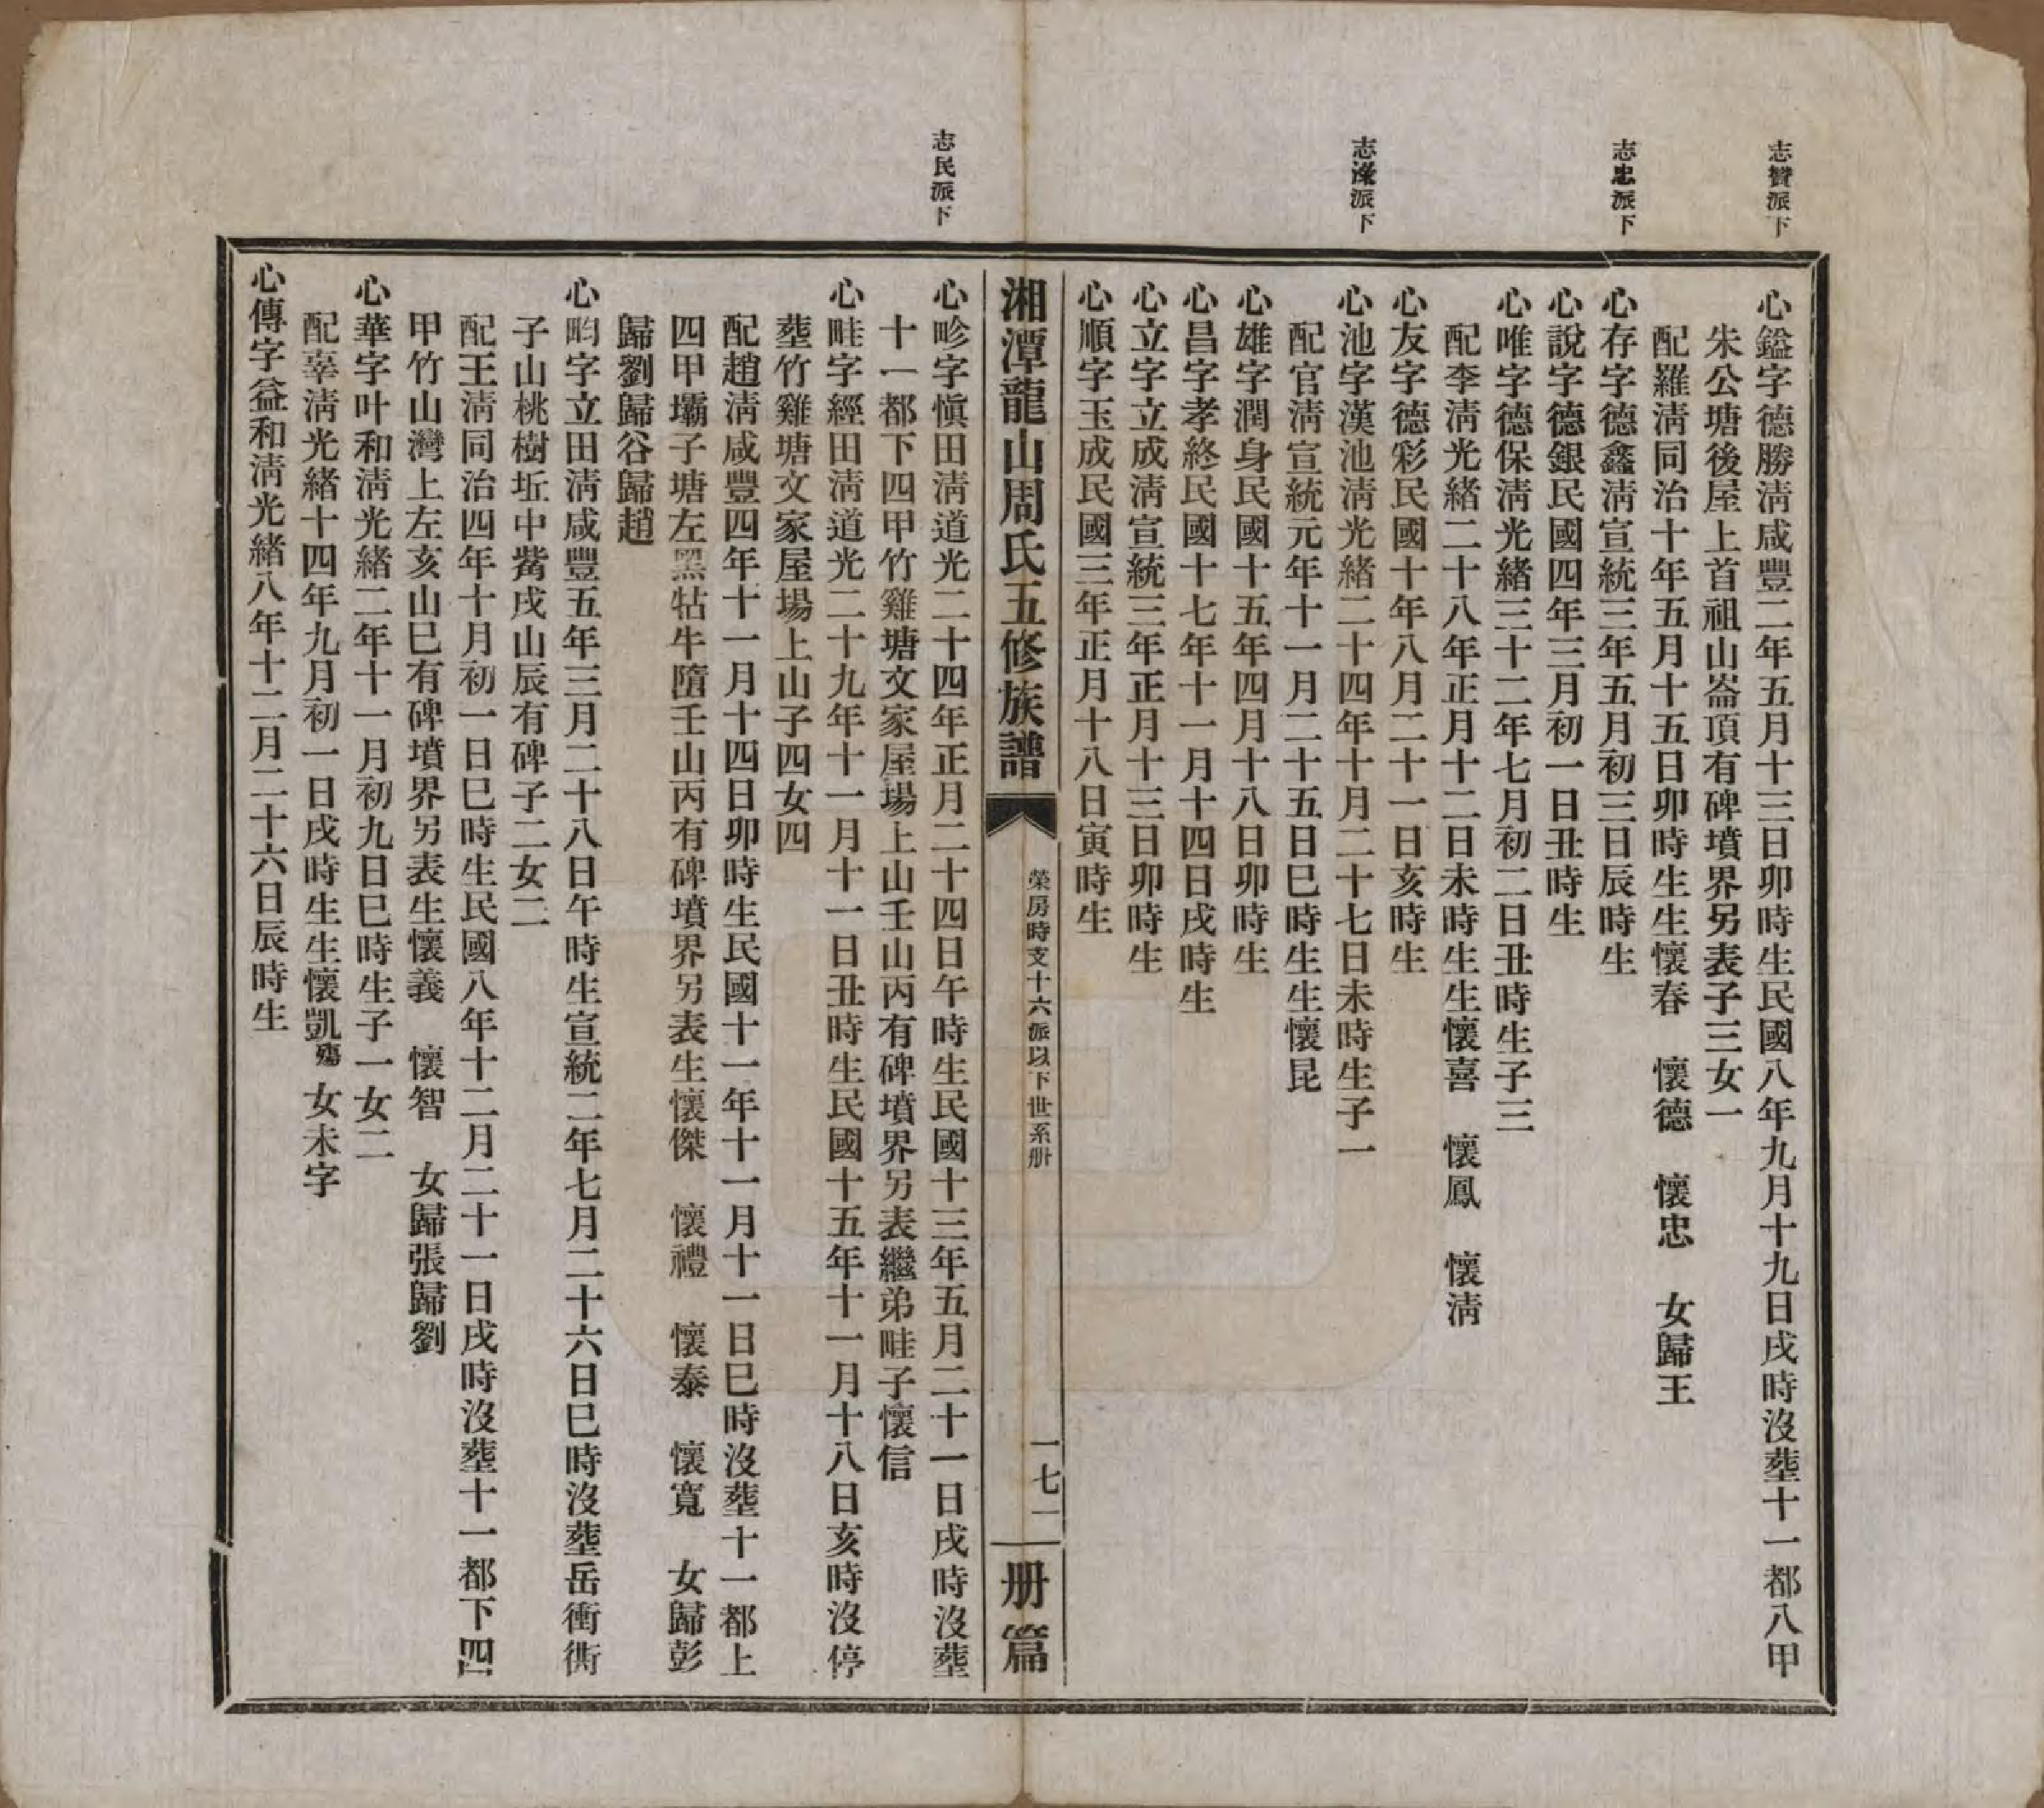 志贊派下
心鎰字德勝淸咸豐二年五月十三日卯時生民國八年九月十九日戌時沒塟十一都八甲
朱公塘後屋上首祖山崙頂有碑墳界另表子三女一
配羅淸同治十年五月十五日卯時生生懷春　懷德　懷忠　女歸王
志忠派下
心存字德鑫淸宣統三年五月初三日辰時生
心說字德銀民國四年三月初一日丑時生
心唯字德保淸光緒三十二年七月初二日丑時生子三
配李淸光緒二十八年正月十二日未時生生懷喜　懷鳳　懷淸
心友字德彩民國十年八月二十一日亥時生
志漋派下
心池字漢池淸光緒二十四年十月二十七日未時生子一
配官淸宣統元年十一月二十五日巳時生生懷昆
心雄字潤身民國十五年四月十八日卯時生
心昌字孝終民國十七年十一月十四日戌時生
心立字立成淸宣統三年正月十三日卯時生
心順字玉成民國三年正月十八日寅時生
湘潭龍山周氏五修族譜
榮房時支十六派以下世系册
一七一
册篇
志民派下
心畛字愼田淸道光二十四年正月二十四日午時生民國十三年五月二十一日戌時沒塟
十一都下四甲竹雞塘文家屋場上山壬山丙有碑墳界另表繼弟畦子懷信
心畦字經田淸道光二十九年十一月十一日丑時生民國十五年十一月十八日亥時沒停
塟竹雞塘文家屋場上山子四女四
配趙淸咸豐四年十一月十四日卯時生民國十一年十一月十一日巳時沒塟十一都上
四甲壩子塘左黑牯牛墮壬山丙有碑墳界另表生懷傑　懷禮　懷泰　懷寬　女歸彭
歸劉歸谷歸趙
心畇字立田淸咸豐五年三月二十八日午時生宣統二年七月二十六日巳時沒塟岳衝衖
子山桃樹坵中觜戌山辰有碑子二女二
配王淸同治四年十月初一日巳時生民國八年十二月二十一日戌時沒塟十一都下四
甲竹山灣上左亥山巳有碑墳界另表生懷義　懷智　女歸張歸劉
心華字叶和淸光緒二年十一月初九日巳時生子一女二
配辜淸光緒十四年九月初一日戌時生生懷凱殤　女未字
心傳字益和淸光緒八年十二月二十六日辰時生